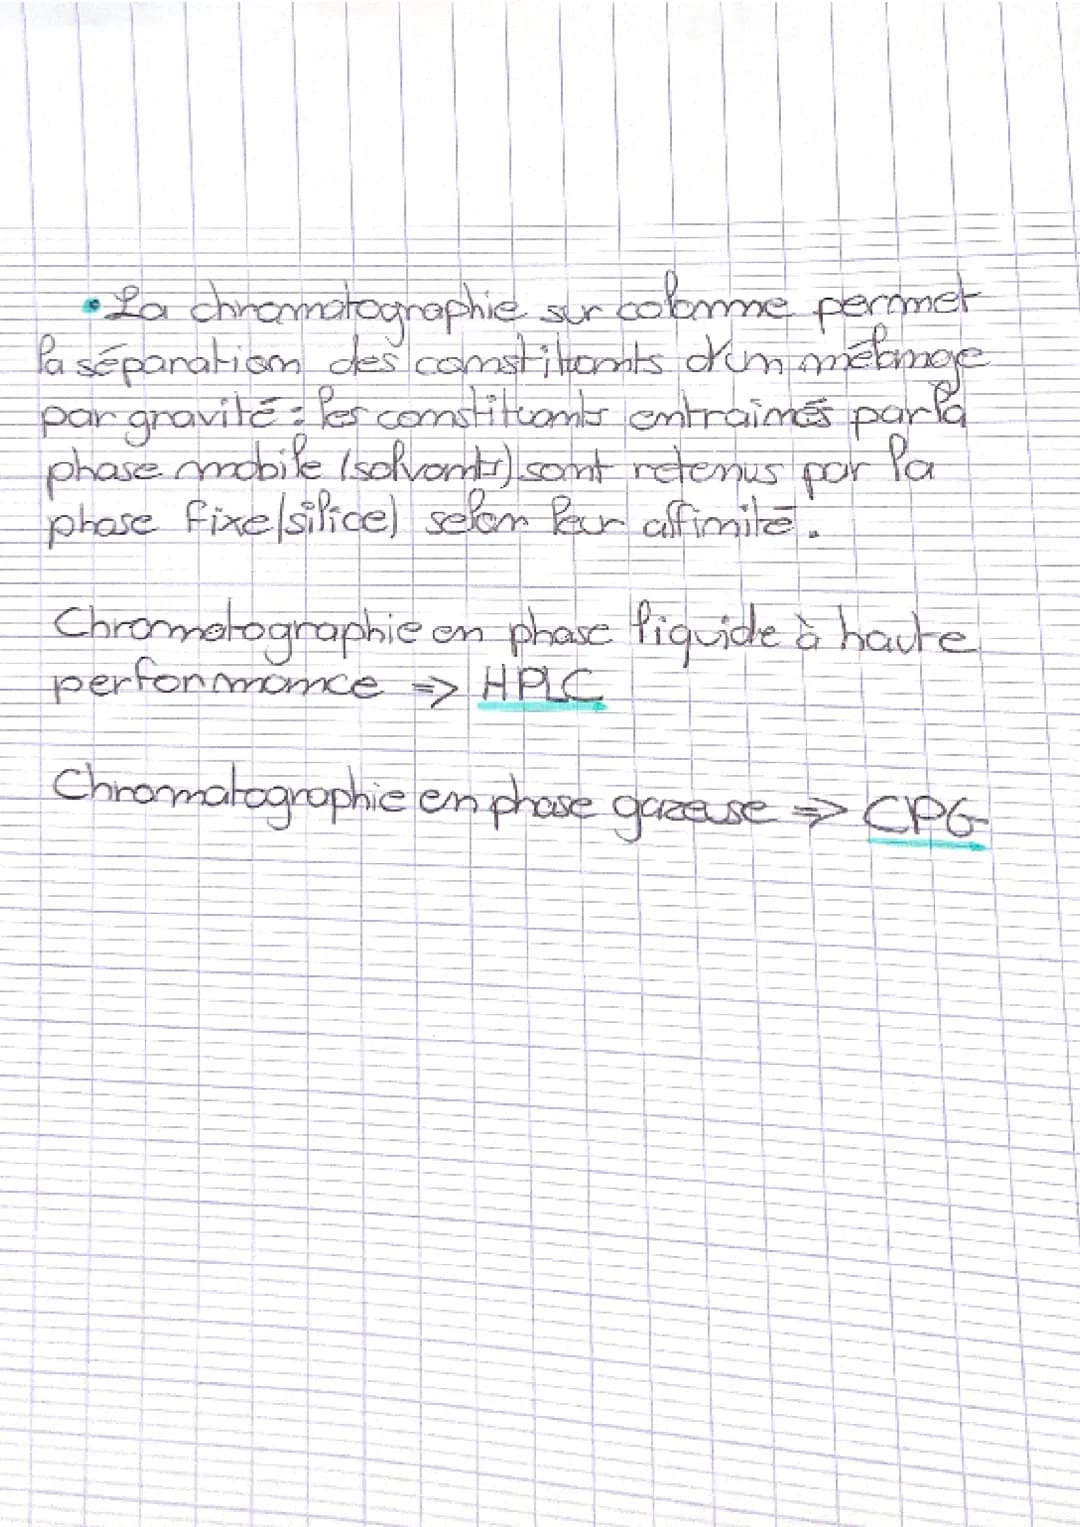 • La chromatographie sur colonne permet
la séparation des constituants d'un mélange
par gravité : les constituants entrainés par la
phase mobile (solvants) sont retenus par la
phase fixe (silice) selon leur affinité.
Chromatographie en phase liquide à haute
performance => HPLC
Chromatographie en phase gazeuse => CPG